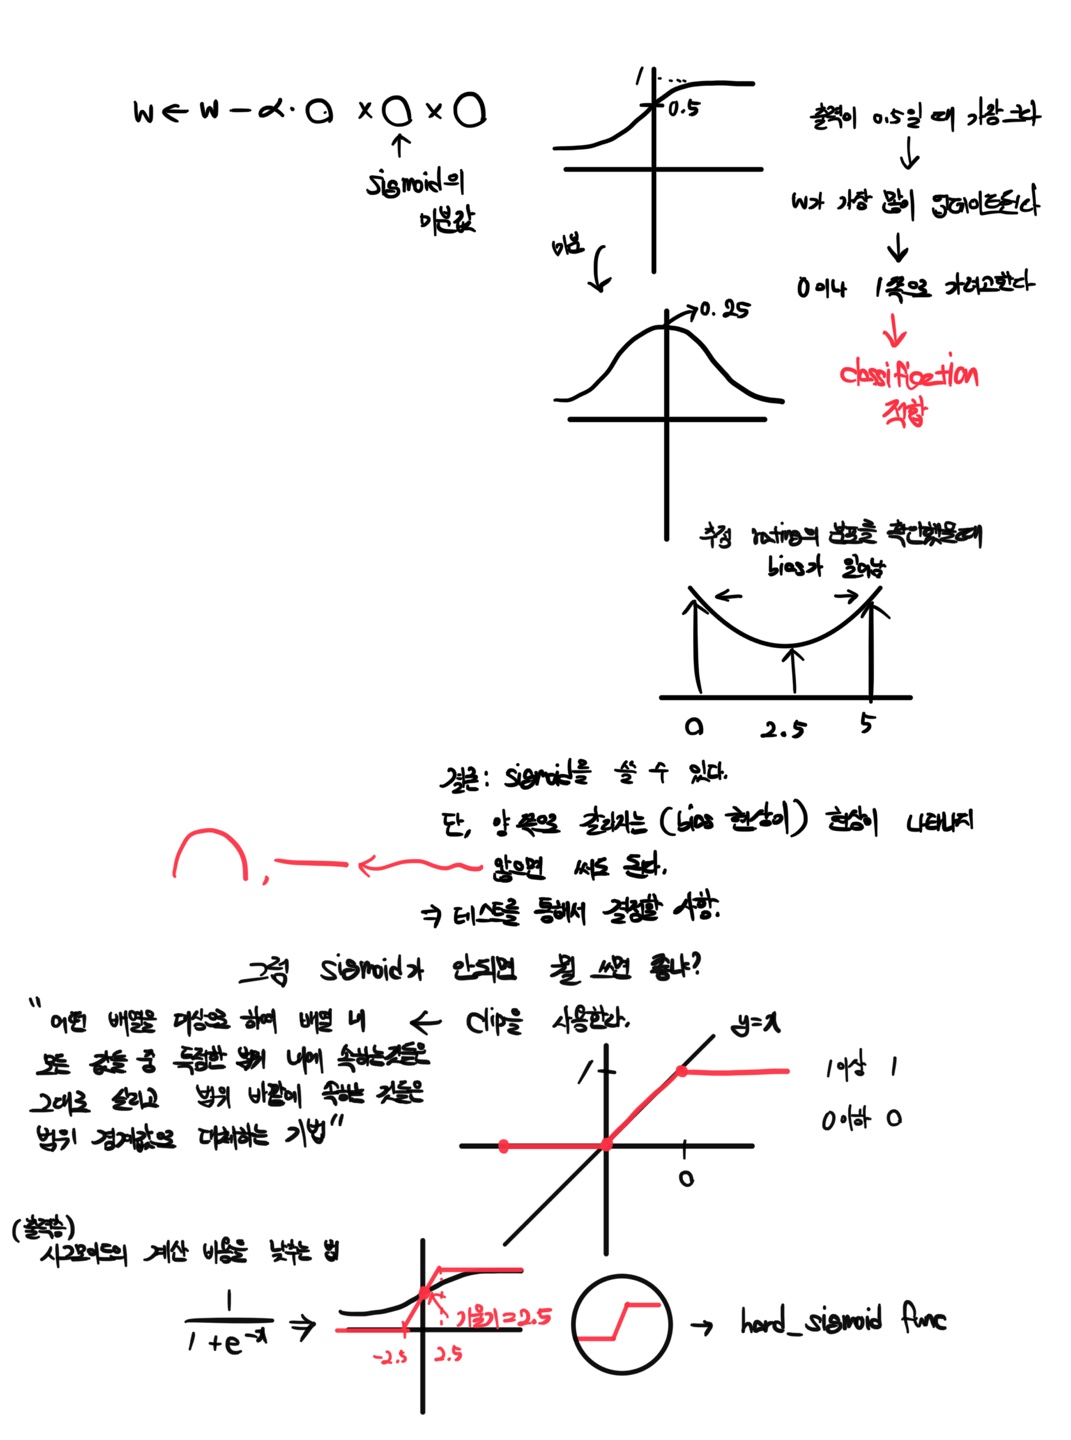 W ← W - α · O × O × O
↑
sigmoid의
미분값
1
0.5
출력이 0.5일 때 가장 크다
↓
W가 가장 많이 업데이트된다
↓
0이나 1쪽으로 가려고한다
↓
classification
적합
미분
0.25
추정 rating의 분포를 확인했을때
bias가 일어남
0 2.5 5
결론: sigmoid를 쓸 수 있다.
단, 양 쪽으로 갈라지는 (bias 현상이) 현상이 나타나지
않으면 써도 된다.
⇒ 테스트를 통해서 결정할 사항.
그럼 sigmoid가 안되면 뭘 쓰면 좋냐?
"어떤 배열을 대상으로 하여 배열 내 ← clip을 사용한다.
모든 값들 중 특정한 범위 내에 속하는것들은
그대로 살리고 범위 바깥에 속하는 것들은
범위 경계값으로 대체하는 기법"
y=x
1
0
1이상 1
0이하 0
(출력층)
시그모이드의 계산 비용을 낮추는 법
1
1+e^-x
⇒
기울기=2.5
-2.5 2.5
→ hard_sigmoid func